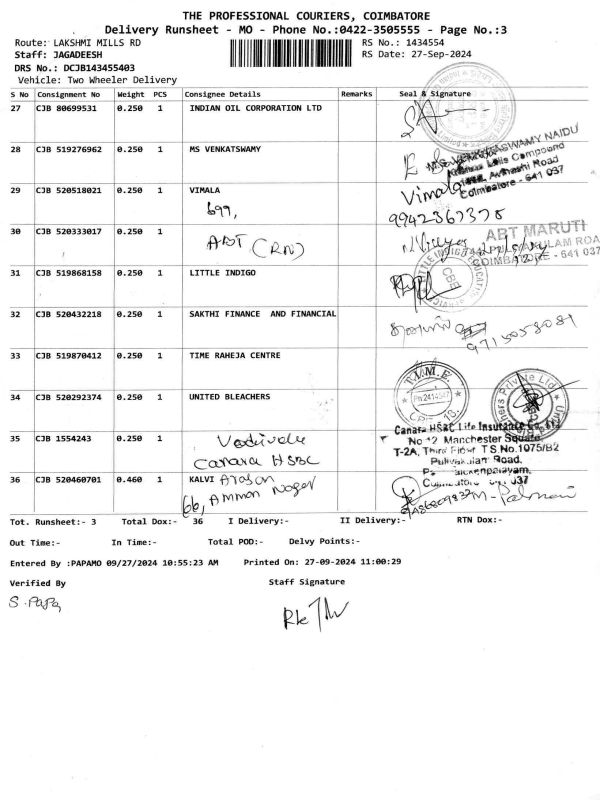 THE PROFESSIONAL COURIERS, COIMBATORE
Delivery Runsheet - MO - Phone No.:0422-3505555 - Page No.:3
Route: LAKSHMI MILLS RD RS No.: 1434554
Staff: JAGADEESH RS Date: 27-Sep-2024
DRS No.: DCJB143455403
Vehicle: Two Wheeler Delivery
S No Consignment No Weight PCS Consignee Details Remarks Seal & Signature
27 CJB 80699531 0.250 1 INDIAN OIL CORPORATION LTD
28 CJB 519276962 0.250 1 MS VENKATSWAMY
Compound
Avinashi Road
Coimbatore - 641 037
29 CJB 520518021 0.250 1 VIMALA Vimala
699, 9942367378
30 CJB 520333017 0.250 1 ABT (RN)
ABT MARUTI
COIMBATORE - 641 037
31 CJB 519868158 0.250 1 LITTLE INDIGO
CBE
32 CJB 520432218 0.250 1 SAKTHI FINANCE AND FINANCIAL
9715058081
33 CJB 519870412 0.250 1 TIME RAHEJA CENTRE
T.I.M.E.
34 CJB 520292374 0.250 1 UNITED BLEACHERS
35 CJB 1554243 0.250 1 Vadivelu
Canara HSBC
Canara HSBC Life Insurance Co. Ltd
No 12 Manchester Square
T-2A, Third Floor T.S.No.1075/B2
Road,
36 CJB 520460701 0.460 1 KALVI Arasan
66, Amman Nagar
Tot. Runsheet:- 3 Total Dox:- 36 I Delivery:- II Delivery:- RTN Dox:-
Out Time:- In Time:- Total POD:- Delvy Points:-
Entered By :PAPAMO 09/27/2024 10:55:23 AM Printed On: 27-09-2024 11:00:29
Verified By Staff Signature
S. Papa